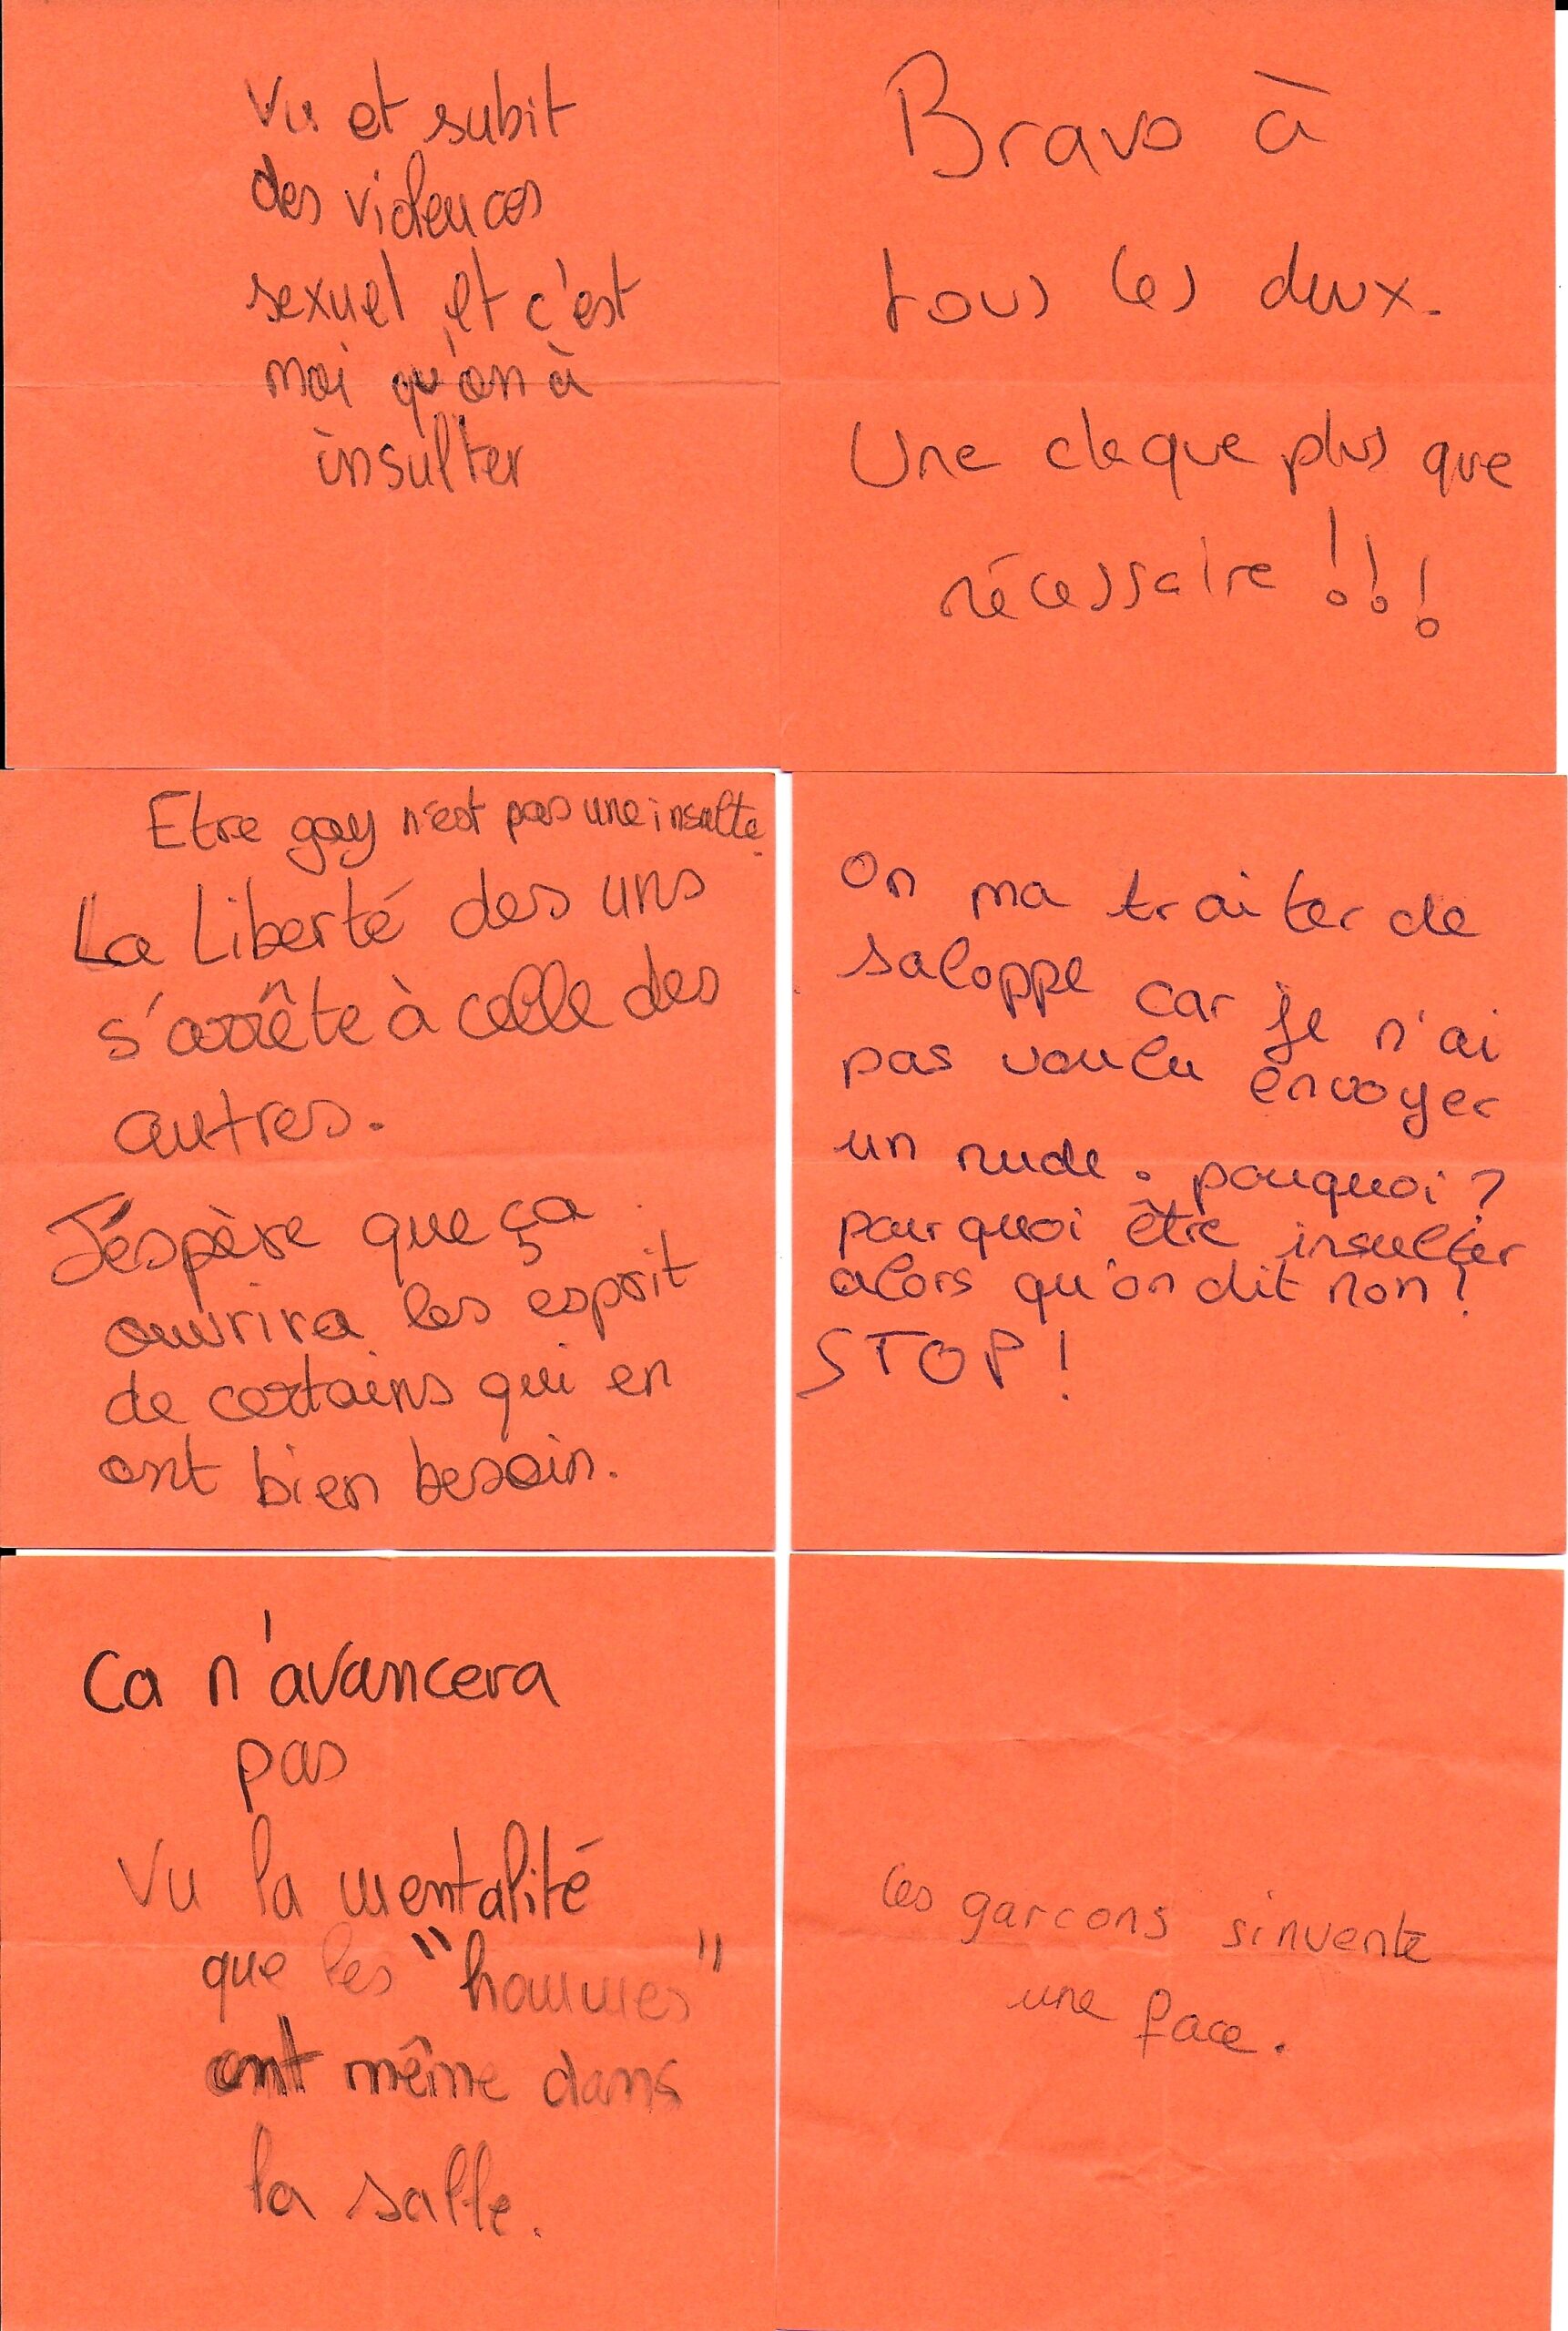 Vu et subit
des violences
sexuel et c'est
moi qu'on à
insulter
Bravo à
tous les deux.
Une claque plus que
nécessaire !!!
Etre gay n'est pas une insulte.
La Liberté des uns
s'arrête à celle des
autres.
J'éspère que ça
ouvrira les esprit
de certains qui en
ont bien besoin.
On ma traiter de
saloppe car je n'ai
pas voulu envoyer
un nude. pouquoi ?
pourquoi être insulter
alors qu'on dit non !
STOP !
Ca n'avancera
pas
Vu la mentalité
que les "hommes"
ont même dans
la salle.
Les garcons s'invente
une face.